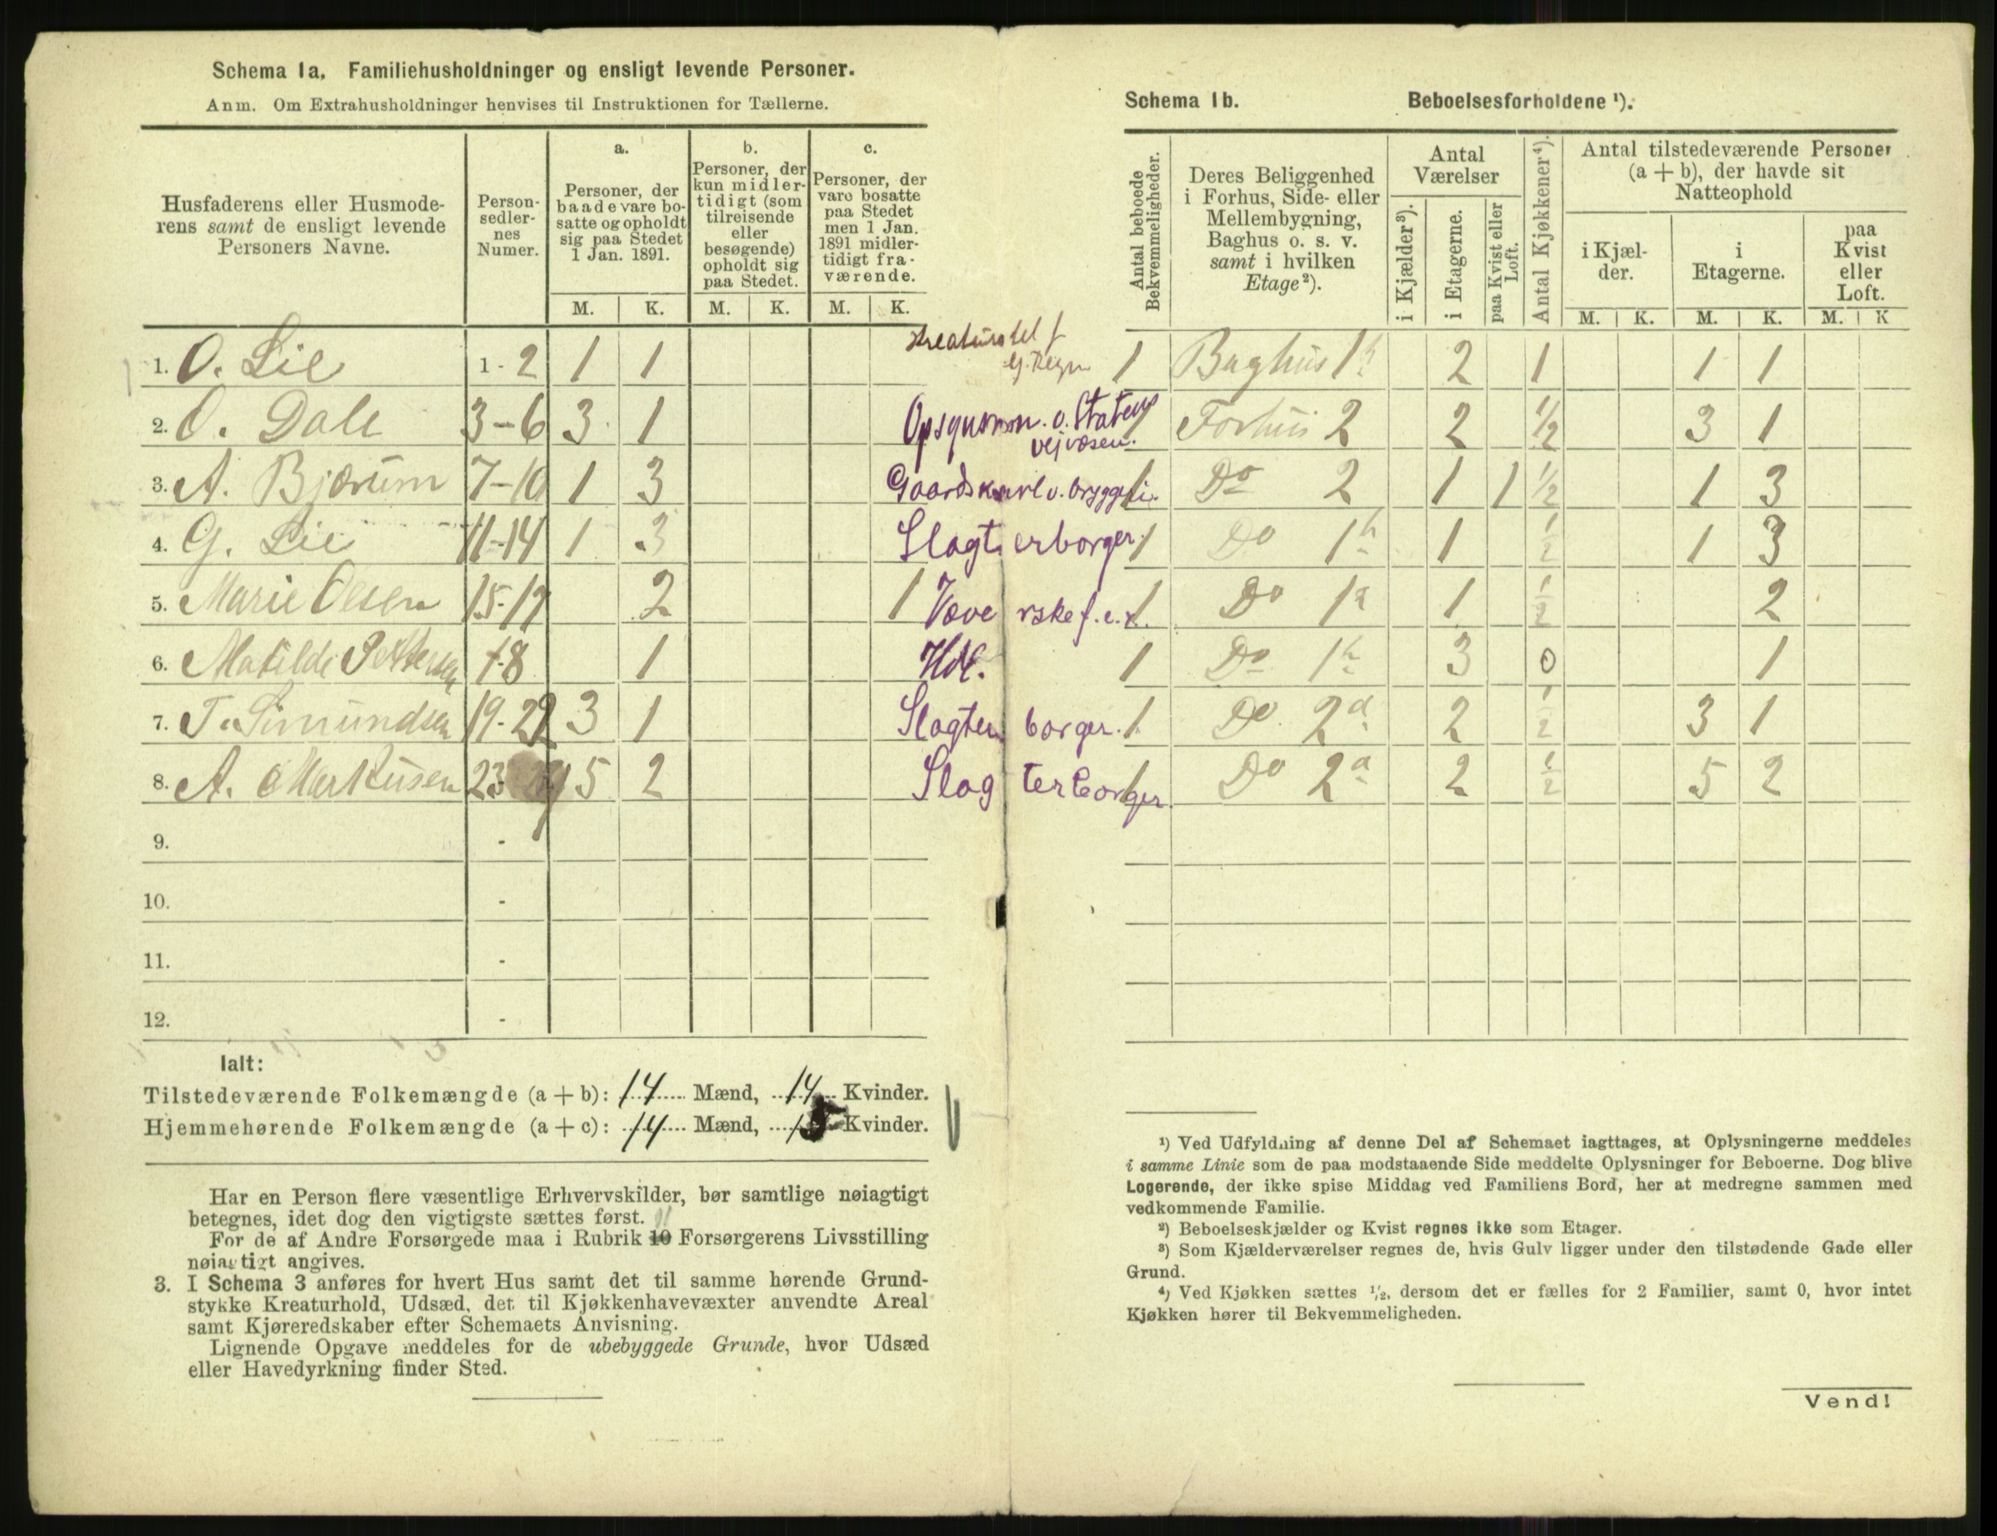 Schema 1a. Familiehusholdninger og ensligt levende Personer.
Anm. Om Extrahusholdninger henvises til Instruktionen for Tællerne.
Husfaderens eller Husmoderens samt de ensligt levende Personers Navne.
Personsedlernes Numer.
a.
Personer, der baade vare bosatte og opholdt sig paa Stedet 1 Jan. 1891.
b.
Personer, der kun midlertidigt (som tilreisende eller besøgende) opholdt sig paa Stedet.
c.
Personer, der vare bosatte paa Stedet men 1 Jan. 1891 midlertidigt fraværende.
M. K. M. K. M. K.
1. O. Lie 1-2 1 1
2. O. Dale 3-6 3 1
3. A. Bjørum 7-10 1 3
4. G. Lie 11-14 1 3
5. Marie Olsen 15-17 2 1
6. Matilde Pettersen 18 1
7. T. Simundsen 19-22 3 1
8. A. Markusen 23-29 5 2
9. -
10. -
11. -
12. -
Ialt:
Tilstedeværende Folkemængde (a + b): 14 Mænd, 14 Kvinder.
Hjemmehørende Folkemængde (a + c): 14 Mænd, 15 Kvinder.
Har en Person flere væsentlige Erhvervskilder, bør samtlige nøiagtigt
betegnes, idet dog den vigtigste sættes først.
For de af Andre Forsørgede maa i Rubrik 10 Forsørgerens Livsstilling
nøiagtigt angives.
3. I Schema 3 anføres for hvert Hus samt det til samme hørende Grund-
stykke Kreaturhold, Udsæd, det til Kjøkkenhavevæxter anvendte Areal
samt Kjøreredskaber efter Schemaets Anvisning.
Lignende Opgave meddeles for de ubebyggede Grunde, hvor Udsæd
eller Havedyrkning finder Sted.
Schema 1b. Beboelsesforholdene ¹).
Antal beboede Bekvemmeligheder.
Deres Beliggenhed i Forhus, Side- eller Mellembygning, Baghus o. s. v. samt i hvilken Etage ²).
Antal Værelser
i Kjælder ³).
i Etagerne.
paa Kvist eller Loft.
Antal Kjøkkener ⁴).
Antal tilstedeværende Personer (a + b), der havde sit Natteophold
i Kjælder.
i Etagerne.
paa Kvist eller Loft.
M. K. M. K. M. K
1 Baghus 1h 2 1 1 1
Opsynsm. v. Statens vejvæsen. 1 Forhus 2 2 1/2 3 1
Gaardskarl v. bryggeri. 1 Do 2 1 1 1/2 1 3
Slagterborger. 1 Do 1h 1 1/2 1 3
Væverske f. e. r. 1 Do 1a 1 1/2 2
Hdl. 1 Do 1h 3 0 1
Slagterborger. 1 Do 2a 2 1/2 3 1
Slagterborger. 1 Do 2a 2 1/2 5 2
¹) Ved Udfyldning af denne Del af Schemaet iagttages, at Oplysningerne meddeles
i samme Linie som de paa modstaaende Side meddelte Oplysninger for Beboerne. Dog blive
Logerende, der ikke spise Middag ved Familiens Bord, her at medregne sammen med
vedkommende Familie.
²) Beboelseskjælder og Kvist regnes ikke som Etager.
³) Som Kjælderværelser regnes de, hvis Gulv ligger under den tilstødende Gade eller
Grund.
⁴) Ved Kjøkken sættes ¹/₂, dersom det er fælles for 2 Familier, samt 0, hvor intet
Kjøkken hører til Bekvemmeligheden.
Vend!